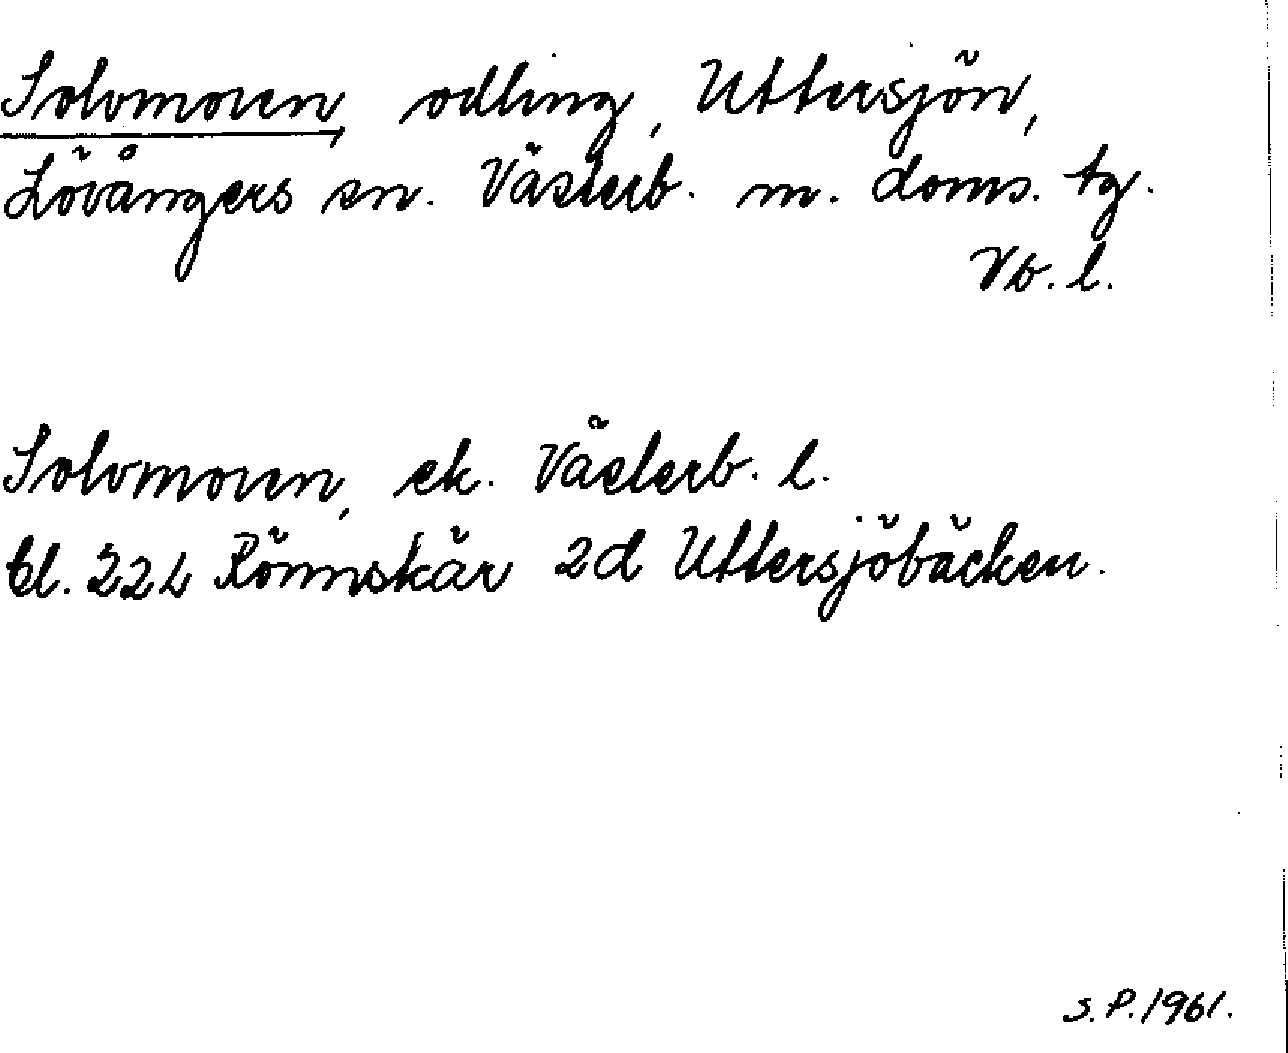 Solvmoren, odling, Uttersjön,
Lövångers sn. Västerb. m. doms. tg.
Vb. l.
Solvmoren, ek. Västerb. l.
bl. 22L Rönnskär 2d Uttersjöbäcken.
S.P. 1961.